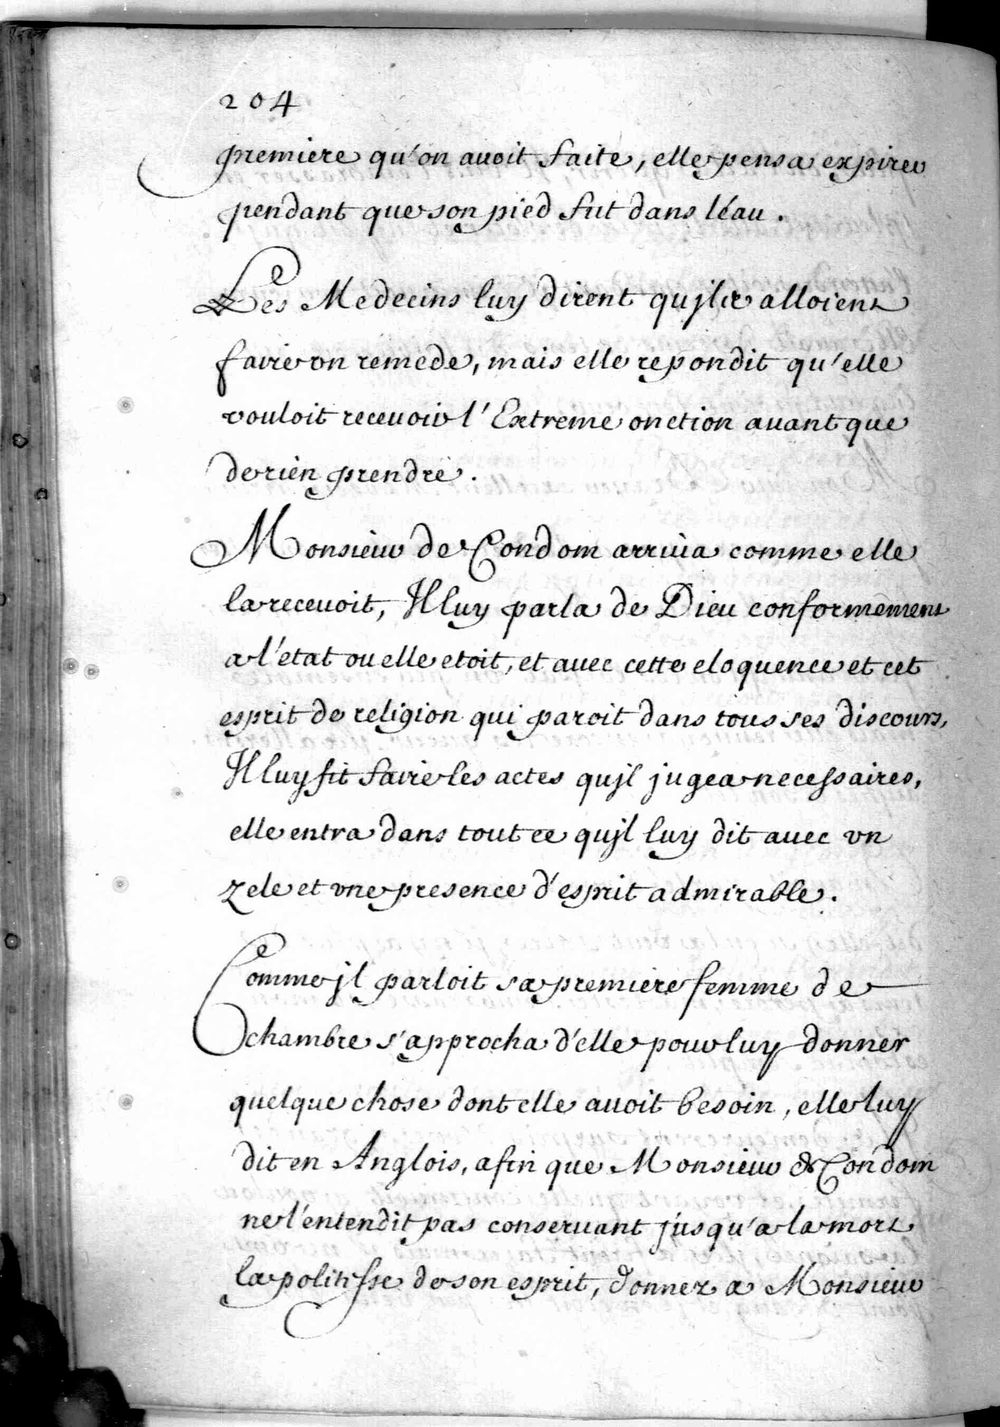 204
premiere qu'on auoit faite, elle pensa expirer
pendant que son pied fut dans léau.
Les Medecins luy dirent qujls alloient
faire vn remede, mais elle repondit qu'elle
vouloit receuoir l'Extreme onction auant que
de rién prendre.
Monsieur de Condom arriua comme elle
la receuoit, Il luy parla de Dieu conformement
a l'état ou elle etoit, et auec cette eloquence et cet
esprit de religion qui paroit dans tous ses discours,
Il luy fit faire les actes qujl jugea necessaires,
elle entra dans tout ce qujl luy dit auec vn
zele et vne presence d'esprit admirable.
Comme jl parloit sa premiere femme de
chambre s'approcha d'elle pour luy donner
quelque chose dont elle auoit besoin, elle luy
dit en Anglois, afin que Monsieur de Condom
ne l'entendit pas conseruant jusqu'a la mort
la politesse de son esprit, donnez a Monsieur